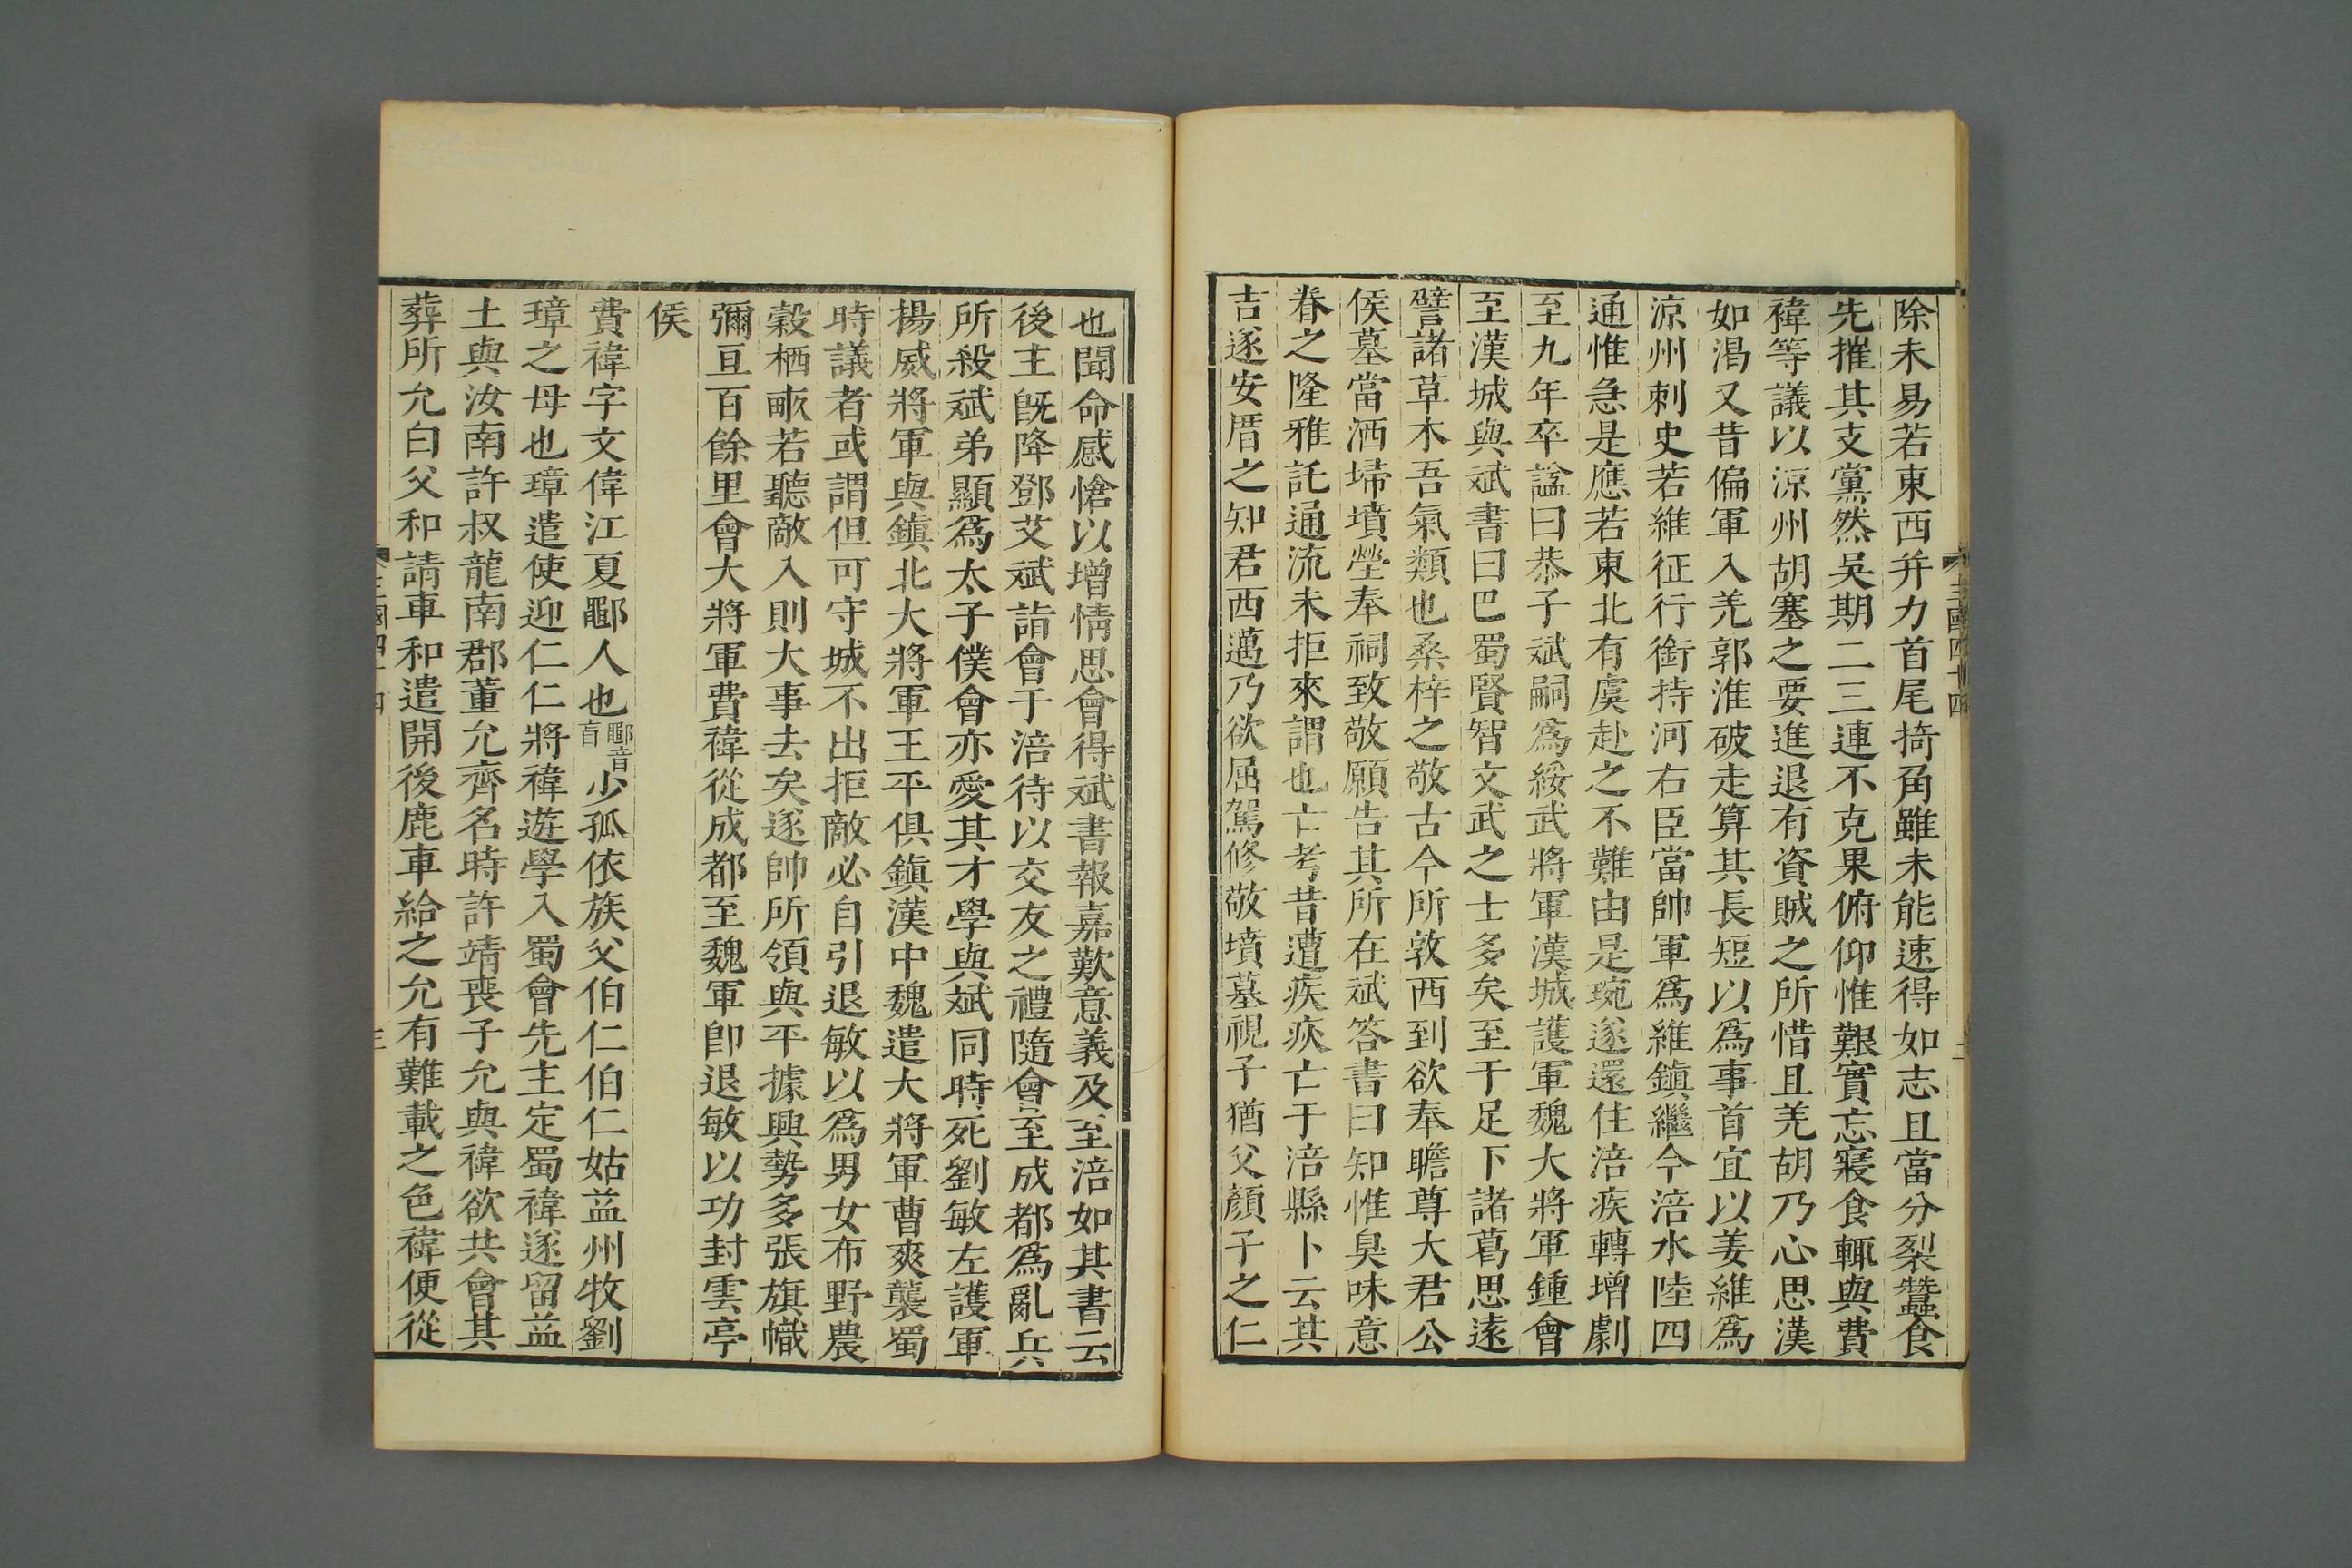 除未易若東西并力首尾掎角雖未能速得如志且當分裂蠶食
先摧其支黨然吳期二三連不克果俯仰惟艱實忘寢食輒與費
禕等議以涼州胡塞之要進退有資賊之所惜且羌胡乃心思漢
如渴又昔偏軍入羌郭淮破走算其長短以爲事首宜以姜維爲
涼州刺史若維征行銜持河右臣當帥軍爲維鎮繼今涪水陸四
通惟急是應若東北有虞赴之不難由是琬遂還住涪疾轉增劇
至九年卒諡曰恭子斌嗣爲綏武將軍漢城護軍魏大將軍鍾會
至漢城與斌書曰巴蜀賢智文武之士多矣至于足下諸葛思遠
譬諸草木吾氣類也桑梓之敬古今所敦西到欲奉瞻尊大君公
侯墓當洒埽墳塋奉祠致敬願告其所在斌答書曰知惟臭味意
眷之隆雅託通流未拒來謂也亡考昔遭疾疢亡于涪縣卜云其
吉遂安厝之知君西邁乃欲屈駕修敬墳墓視子猶父顏子之仁
三國四十四
二
也聞命感愴以增情思會得斌書報嘉歎意義及至涪如其書云
後主旣降鄧艾斌詣會于涪待以交友之禮隨會至成都爲亂兵
所殺斌弟顯爲太子僕會亦愛其才學與斌同時死劉敏左護軍
揚威將軍與鎮北大將軍王平俱鎮漢中魏遣大將軍曹爽襲蜀
時議者或謂但可守城不出拒敵必自引退敏以爲男女布野農
穀栖畝若聽敵入則大事去矣遂帥所領與平據興勢多張旗幟
彌亘百餘里會大將軍費禕從成都至魏軍卽退敏以功封雲亭
侯
費禕字文偉江夏鄳人也鄳音盲少孤依族父伯仁伯仁姑益州牧劉
璋之母也璋遣使迎仁仁將禕遊學入蜀會先主定蜀禕遂留益
土與汝南許叔龍南郡董允齊名時許靖喪子允與禕欲共會其
葬所允白父和請車和遣開後鹿車給之允有難載之色禕便從
三國四十四
三